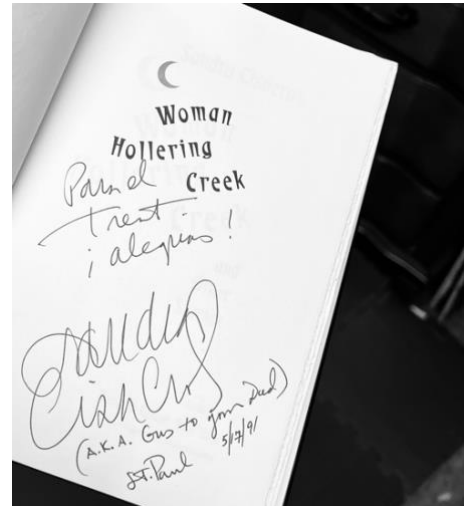 Woman
Hollering
Creek
Trent
¡alegrias!
Sandra
Cisneros
(A.K.A. Gus to your Dad)
5/17/91
St. Paul